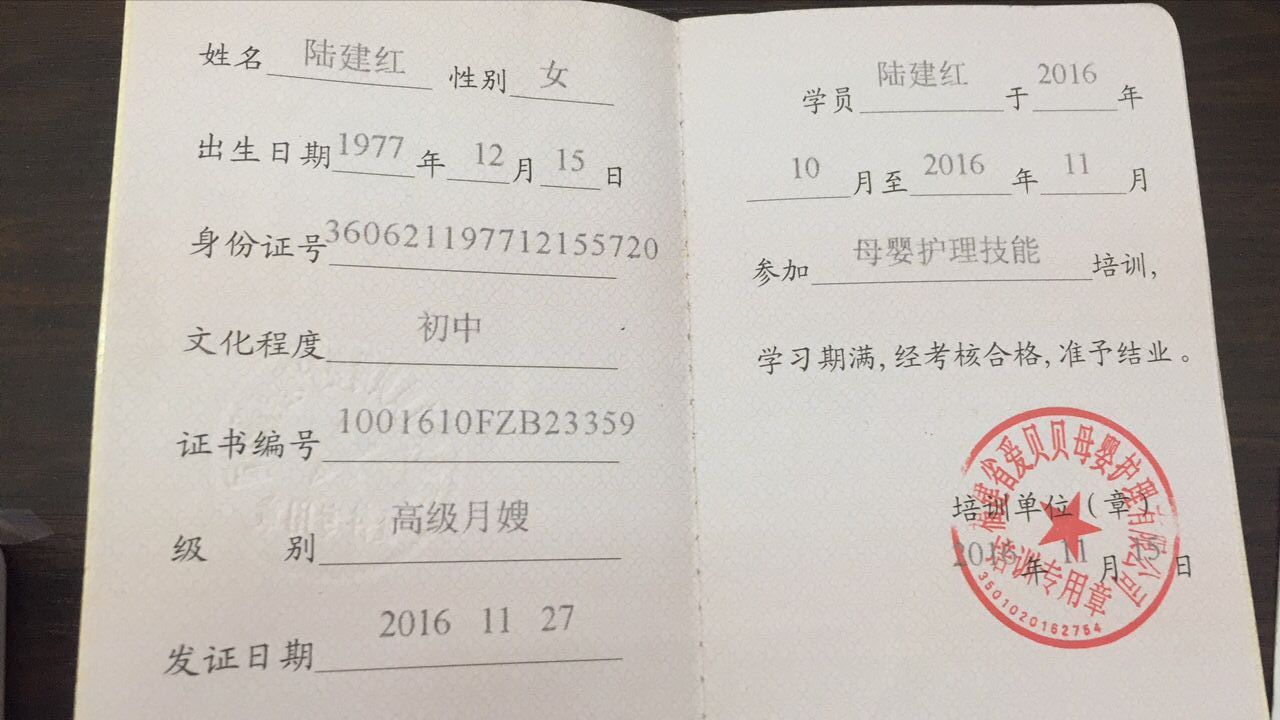 姓名 陆建红 性别 女
出生日期 1977 年 12 月 15 日
身份证号 360621197712155720
文化程度 初中
证书编号 1001610FZB23359
级 别 高级月嫂
发证日期 2016 11 27
学员 陆建红 于 2016 年
10 月至 2016 年 11 月
参加 母婴护理技能 培训,
学习期满,经考核合格,准予结业。
福建省爱贝贝母婴护理有限公司
培训单位(章)
2016 年 11 月 15 日
培训专用章
3501020162754